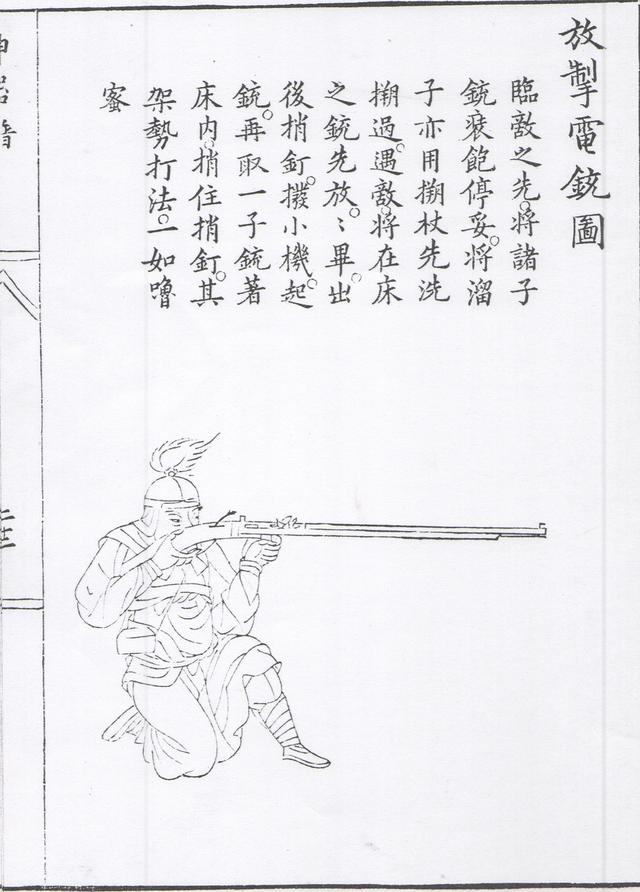 放掣電銃圖
臨敵之先。將諸子
銃裝飽停妥。將溜
子亦用搠杖先洗
搠過。遇敵。將在床
之銃先放。〻畢。出
後捎釘。撥小機。起
銃。再取一子銃著
床内。捎住捎釘。其
架勢打法。一如嚕
蜜